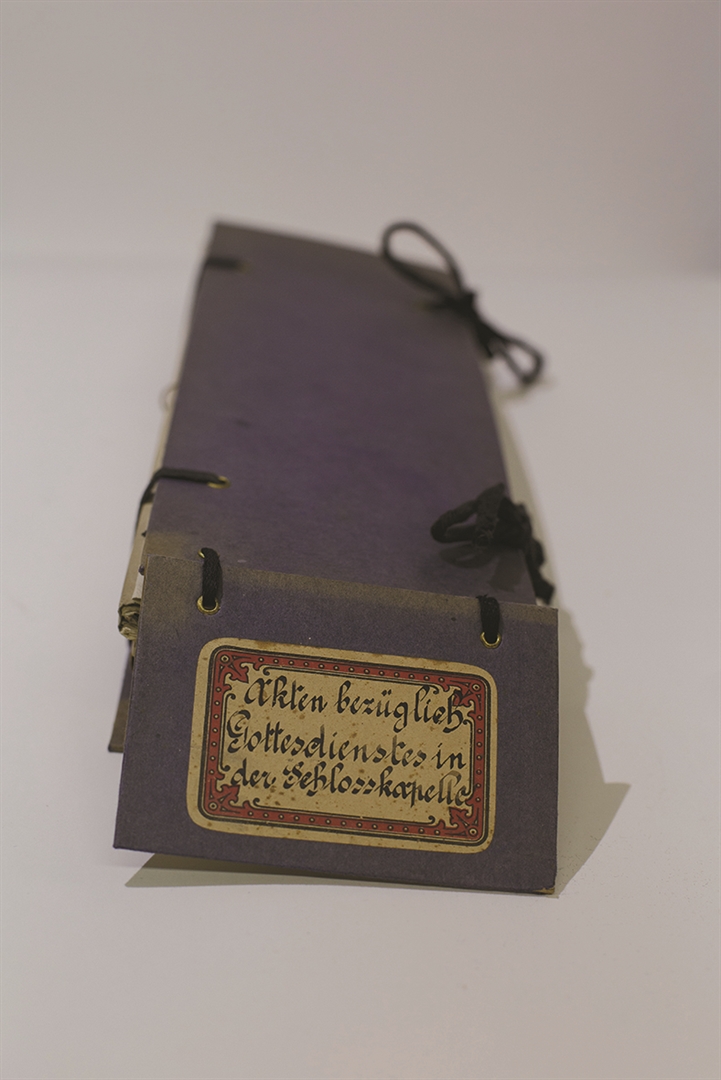 Akten bezüglich
Gottesdienstes in
der Schlosskapelle